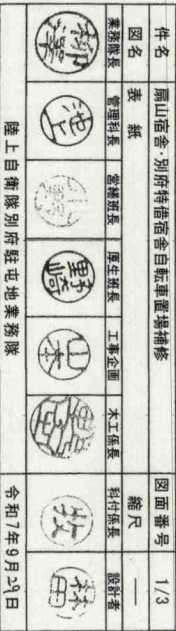 件名 扇山宿舎・別府特借宿舎自転車置場補修 図面番号 1/3
図名 表紙 縮尺 ―
業務隊長 管理科長 営繕班長 厚生班長 工事企画 木工係長 科付係長 設計者
池上 野崎 山本 牧
陸上自衛隊別府駐屯地業務隊 令和7年9月29日